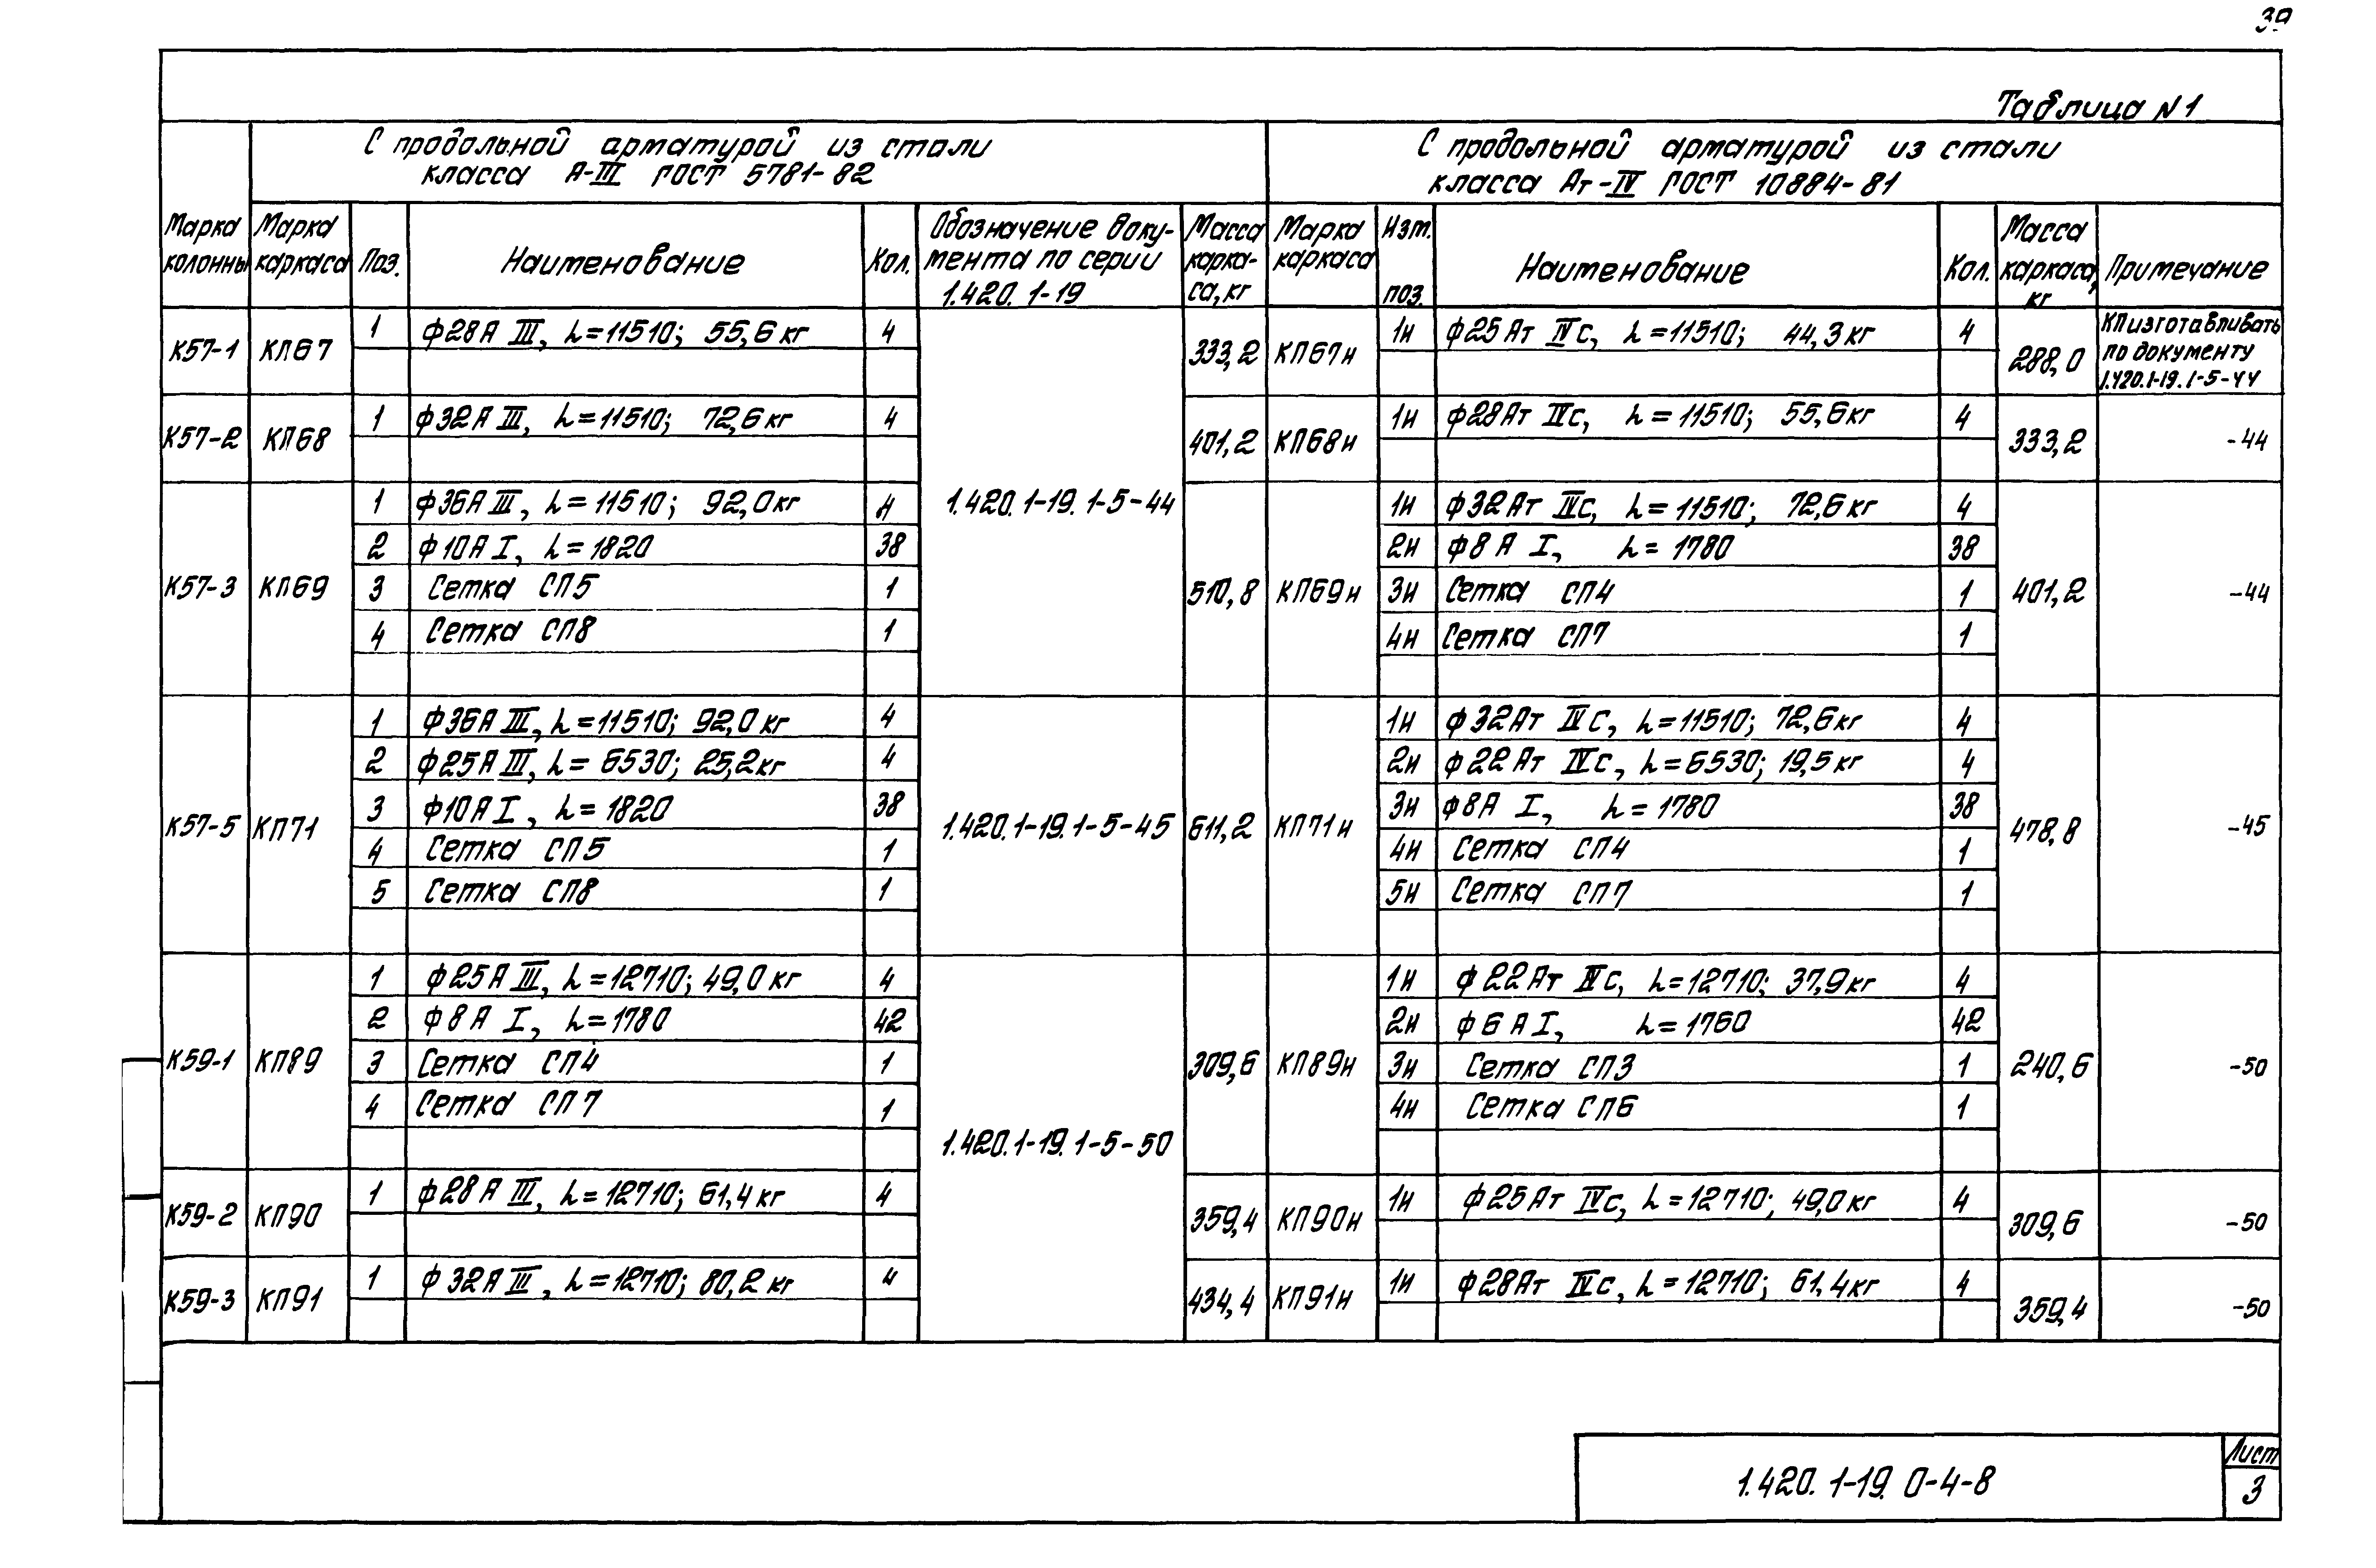 39
Таблица N1
С продольной арматурой из стали
класса А-III ГОСТ 5781-82
С продольной арматурой из стали
класса Ат-IV ГОСТ 10884-81
Марка колонны
Марка каркаса
Поз.
Наименование
Кол.
Обозначение доку-
мента по серии
1.420.1-19
Масса
карка-
са, кг
Марка каркаса
Изм. поз.
Наименование
Кол.
Масса каркаса, кг
Примечание
К57-1 КП67 1 ф28А III, L=11510; 55,6 кг 4 333,2 КП67н 1н ф25Ат IVс, L=11510; 44,3 кг 4 288,0
КП изготавливать
по документу
1.420.1-19.1-5-44
К57-2 КП68 1 ф32А III, L=11510; 72,6 кг 4 401,2 КП68н 1н ф28Ат IVс, L=11510; 55,6 кг 4 333,2 -44
1.420.1-19.1-5-44
К57-3 КП69 510,8 КП69н 401,2 -44
1 ф36А III, L=11510; 92,0 кг 4 1н ф32Ат IVс, L=11510; 72,6 кг 4
2 ф10А I, L=1820 38 2н ф8А I, L=1780 38
3 Сетка СП5 1 3н Сетка СП4 1
4 Сетка СП8 1 4н Сетка СП7 1
К57-5 КП71 1.420.1-19.1-5-45 611,2 КП71н 478,8 -45
1 ф36А III, L=11510; 92,0 кг 4 1н ф32Ат IVС, L=11510; 72,6 кг 4
2 ф25А III, L=6530; 25,2 кг 4 2н ф22Ат IVс, L=6530; 19,5 кг 4
3 ф10А I, L=1820 38 3н ф8А I, L=1780 38
4 Сетка СП5 1 4н Сетка СП4 1
5 Сетка СП8 1 5н Сетка СП7 1
К59-1 КП89 309,6 КП89н 240,6 -50
1 ф25А III, L=12710; 49,0 кг 4 1н ф22Ат IVс, L=12710; 37,9 кг 4
2 ф8А I, L=1780 42 2н ф6А I, L=1760 42
3 Сетка СП4 1 3н Сетка СП3 1
4 Сетка СП7 1 4н Сетка СП6 1
1.420.1-19.1-5-50
К59-2 КП90 1 ф28А III, L=12710; 61,4 кг 4 359,4 КП90н 1н ф25Ат IVс, L=12710; 49,0 кг 4 309,6 -50
К59-3 КП91 1 ф32А III, L=12710; 80,2 кг 4 434,4 КП91н 1н ф28Ат IVс, L=12710; 61,4 кг 4 359,4 -50
1.420.1-19.0-4-8
Лист
3